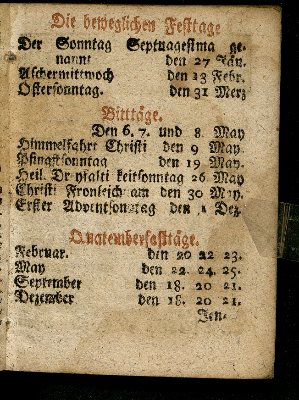 Die beweglichen Festtage
Der Sonntag Septuagesima ge-
nannt den 27 Jän.
Aschermittwoch den 13 Febr.
Ostersonntag. den 31 Merz
Bitttäge.
Den 6. 7. und 8 May
Himmelfahrt Christi den 9 May.
Pfingstsonntag den 19 May.
Heil. Dreyfaltigkeitsonntag 26 May
Christi Fronleichnam den 30 May.
Erster Adventsonntag den 1 Dez.
Quatemberfasttäge.
Februar. den 20 22 23.
May den 22. 24. 25.
September den 18. 20 21.
Dezember den 18. 20 21.
Jen-